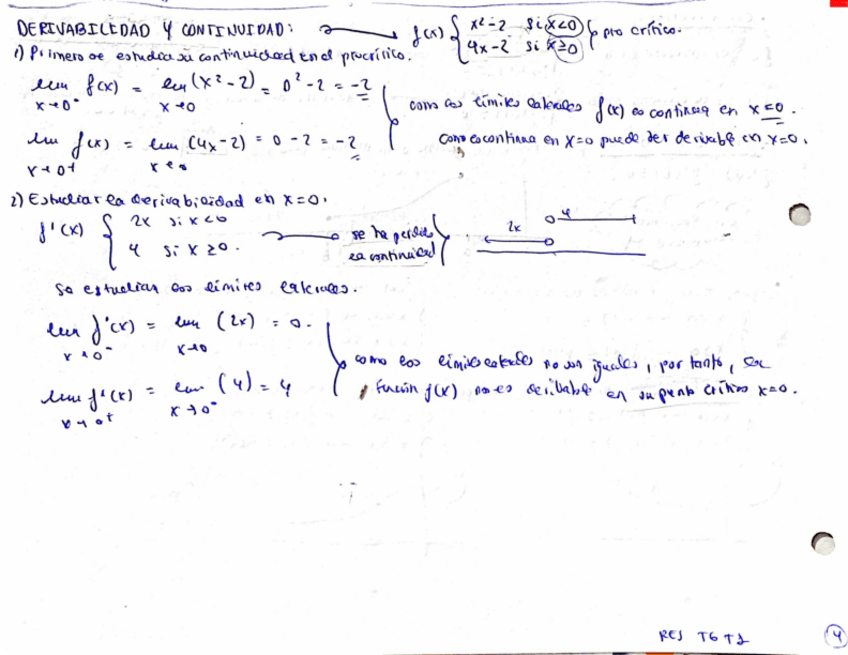 DERIVABILIDAD Y CONTINUIDAD: f(x) { x²-2 si x<0
4x-2 si x≥0 } pto crítico.
1) Primero se estudia su continuidad en el pto crítico.
lim f(x) = lim (x²-2) = 0²-2 = -2
x→0⁻ x→0
como los límites laterales f(x) es continua en x=0.
lim f(x) = lim (4x-2) = 0-2 = -2
x→0+ x→0
Como es continua en x=0 puede ser derivable en x=0.
2) Estudiar la derivabilidad en x=0.
f'(x) { 2x si x<0
4 si x≥0.
se ha perdido
la continuidad
2x 4
Se estudian los límites laterales.
lim f'(x) = lim (2x) = 0.
x→0⁻ x→0
como los límites laterales no son iguales, por tanto, la
función f(x) no es derivable en su punto crítico x=0.
lim f'(x) = lim (4) = 4
x→0+ x→0
RES T6 T7
4